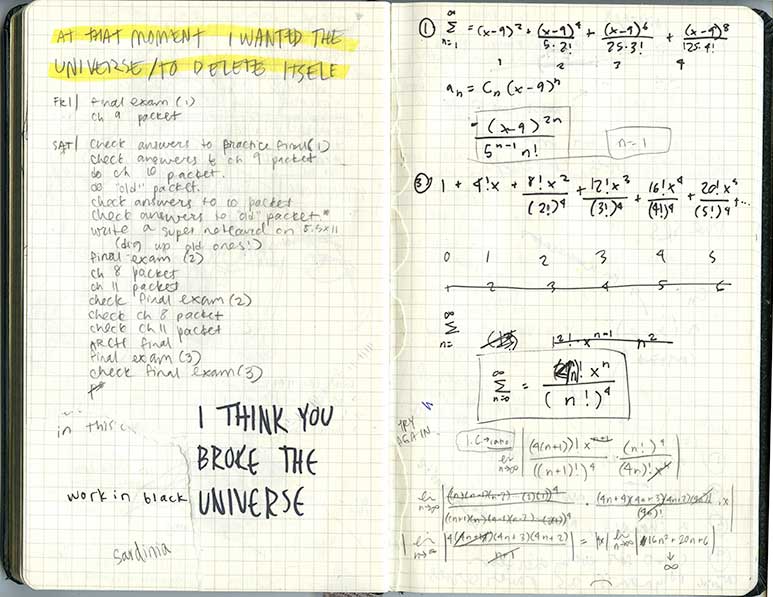 AT THAT MOMENT I WANTED THE
UNIVERSE/TO DELETE ITSELF
FRI/ final exam (1)
ch 9 packet
SAT/ check answers to practice final (1)
check answers to ch 9 packet
do ch 10 packet.
do "old" packet.
check answers to 10 packet
check answers to "old" packet*
write a super notecard on 8.5x11
(dig up old ones!)
final exam (2)
ch 8 packet
ch 11 packet
check final exam (2)
check ch 8 packet
check ch 11 packet
final
final exam (3)
check final exam (3)
in this
I THINK YOU
BROKE THE
UNIVERSE
work in black
sardinia
① ∞ Σ n=1 = (x-9)² + (x-9)⁴/5·2! + (x-9)⁶/25·3! + (x-9)⁸/125·4!
1 2 3 4
aₙ = Cₙ (x-9)ⁿ
(x-9)²ⁿ / 5ⁿ⁻¹ n!
n-1
③ 1 + 4!x + 8!x²/(2!)⁴ + 12!x³/(3!)⁴ + 16!x⁴/(4!)⁴ + 20!x⁵/(5!)⁴ + ...
0 1 2 3 4 5
2 3 4 5 6
∞ Σ n=
∞ Σ n=0 = (4n)! xⁿ / (n!)⁴
TRY
AGAIN
lim n→∞ | (4(n+1))! xⁿ⁺¹ / ((n+1)!)⁴ · (n!)⁴ / (4n)! xⁿ |
lim n→∞ | (4n+4)(4n+3)(4n+2) · x |
lim n→∞ | 4(4n+1)(4n+3)(4n+2) / n+1 | = |x| lim n→∞ | 16n² + 20n + 6 |
↓
∞